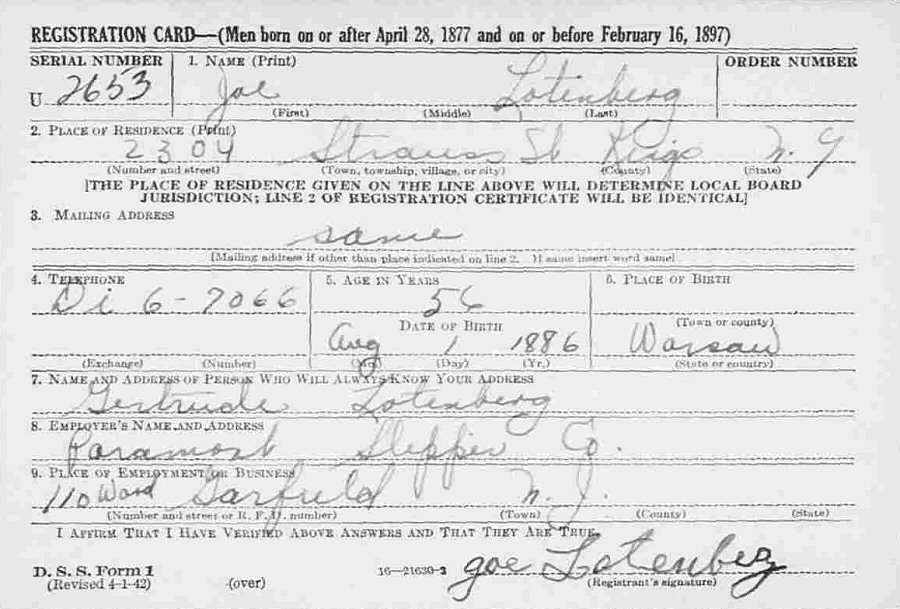 REGISTRATION CARD—(Men born on or after April 28, 1877 and on or before February 16, 1897)
SERIAL NUMBER 1. NAME (Print) ORDER NUMBER
U 2653 Joe Lotenberg
(First) (Middle) (Last)
2. PLACE OF RESIDENCE (Print)
2304 Strauss St Kings N. Y
(Number and street) (Town, township, village, or city) (County) (State)
[THE PLACE OF RESIDENCE GIVEN ON THE LINE ABOVE WILL DETERMINE LOCAL BOARD
JURISDICTION; LINE 2 OF REGISTRATION CERTIFICATE WILL BE IDENTICAL]
3. MAILING ADDRESS
same
[Mailing address if other than place indicated on line 2. If same insert word same]
4. TELEPHONE 5. AGE IN YEARS 6. PLACE OF BIRTH
Di 6-7066 56
DATE OF BIRTH (Town or county)
Aug 1 1886 Warsaw
(Exchange) (Number) (Mo.) (Day) (Yr.) (State or country)
7. NAME AND ADDRESS OF PERSON WHO WILL ALWAYS KNOW YOUR ADDRESS
Gertrude Lotenberg
8. EMPLOYER'S NAME AND ADDRESS
Paramont Slepper Co.
9. PLACE OF EMPLOYMENT OR BUSINESS
110 Ward Garfield N. J.
(Number and street or R. F. D. number) (Town) (County) (State)
I AFFIRM THAT I HAVE VERIFIED ABOVE ANSWERS AND THAT THEY ARE TRUE.
D. S. S. Form 1 16—21630-2 Joe Lotenberg
(Revised 4-1-42) (over) (Registrant's signature)